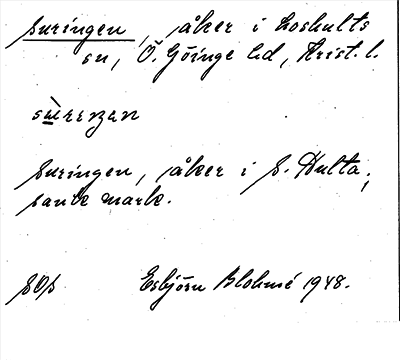 Suringen, åker i Loshults
sn, Ö. Göinge hd, Krist. l.
sùrɛŋən
Suringen, åker i S. Hulta,
sank mark.
Esbjörn Blohmé 1948.